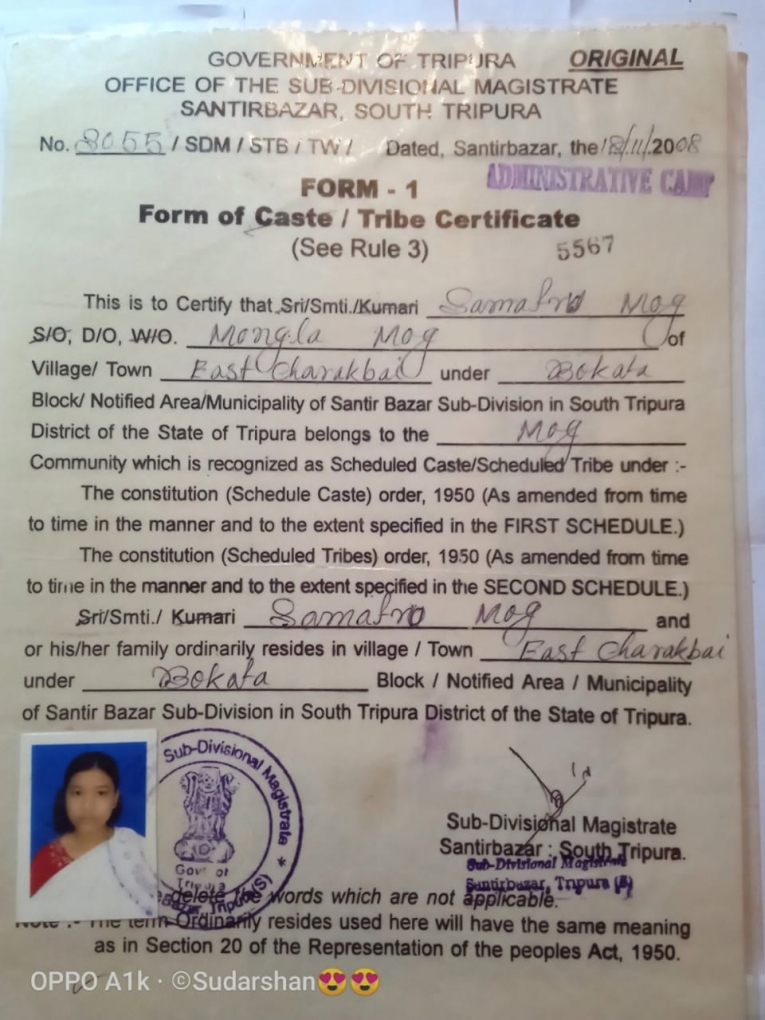 GOVERNMENT OF TRIPURA ORIGINAL
OFFICE OF THE SUB-DIVISIONAL MAGISTRATE
SANTIRBAZAR, SOUTH TRIPURA
No. 8055 / SDM / STB / TW / Dated, Santirbazar, the 18/11/2008
ADMINISTRATIVE CAMP
FORM - 1
Form of Caste / Tribe Certificate
(See Rule 3) 5567
This is to Certify that Sri/Smti./Kumari Mog
S/O, D/O, W/O. Mongla Mog of
Village/ Town East Charakbai under Bokafa
Block/ Notified Area/Municipality of Santir Bazar Sub-Division in South Tripura
District of the State of Tripura belongs to the Mog
Community which is recognized as Scheduled Caste/Scheduled Tribe under :-
The constitution (Schedule Caste) order, 1950 (As amended from time
to time in the manner and to the extent specified in the FIRST SCHEDULE.)
The constitution (Scheduled Tribes) order, 1950 (As amended from time
to time in the manner and to the extent specified in the SECOND SCHEDULE.)
Sri/Smti./ Kumari Mog and
or his/her family ordinarily resides in village / Town East Charakbai
under Bokafa Block / Notified Area / Municipality
of Santir Bazar Sub-Division in South Tripura District of the State of Tripura.
Sub-Divisional Magistrate
Govt of
Tripura
Bazar, Tripura(S)
Sub-Divisional Magistrate
Santirbazar : South Tripura.
Sub-Divisional Magistrate
Santirbazar, Tripura (S)
delete the words which are not applicable.
Note :- The term Ordinarily resides used here will have the same meaning
as in Section 20 of the Representation of the peoples Act, 1950.
OPPO A1k · ©Sudarshan😍😍